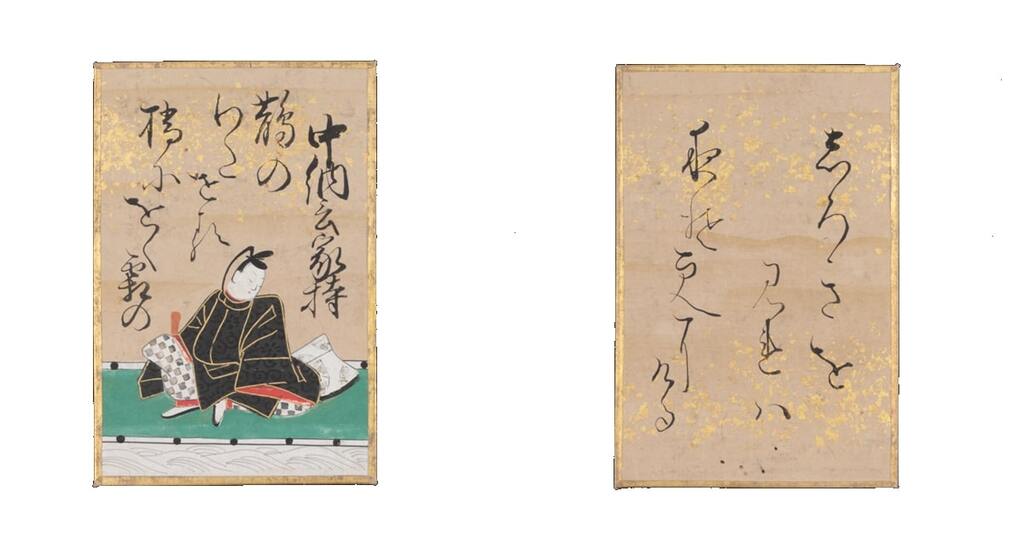 中納言家持
鵲の
わた
せる
橋に
をく霜の
しろきを
みれハ
夜そ更にける